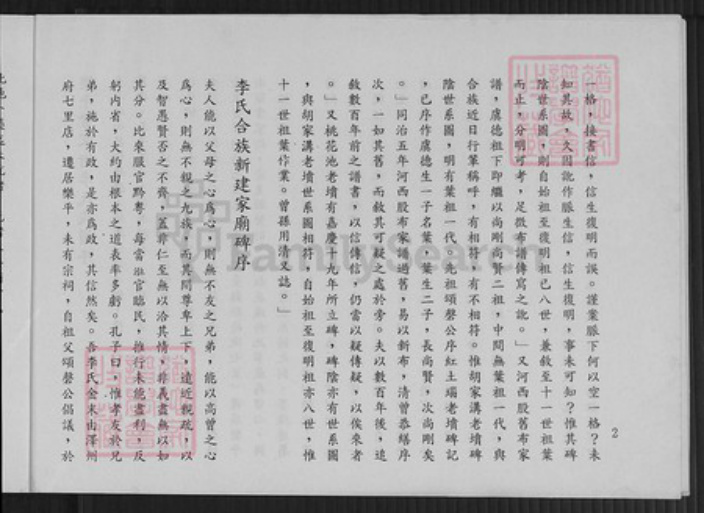 2
一格，接書信，信生復明而誤。謹案脈下何以空一格？未
知其故，久因訛作脈生信，信生復明，事未可知？惟其碑
陰世系圖，則自始祖至復明祖已八世，兼敘至十一世祖葉
而止，分明可考，足徵布譜傳寫之訛。」又河西股舊布家
譜，虞德祖下即繼以尚剛尚賢二祖，中間無葉祖一代，與
合族近日行輩稱呼，有相符，有不相符。惟胡家溝老墳碑
陰世系圖，明有葉祖一代，先祖頌聲公序紅土瑙老墳碑記
，已序作虞德生一子名葉，葉生二子，長尚賢，次尚剛矣
。」同治五年河西股布家誦過舊，易以新布，清曾恭繕序
次，一如其舊，而敘其可疑之處於旁。夫以數百年後，追
敘數百年前之譜書，以信傳信，仍當以疑傳疑，以俟來者
。」又桃花池老墳有嘉慶十九年所立碑，碑陰亦有世系圖
，與胡家溝老墳世系圖相符，自始祖至復明祖亦八世，惟
十一世祖葉作業。曾孫用清又誌。」
李氏合族新建家廟碑序
夫人能以父母之心為心，則無不友之兄弟，能以高曾之心
為心，則無不親之九族，而其間尊卑上下，遠近親疏，以
及智愚賢否之不齊，蓋非仁至無以洽其情，非義盡無以如
其分。比來服官黔粵，每當涖官臨民，推行未能盡利，反
躬內省，大約由根本之道表率多虧。孔子曰，惟孝友於兄
弟，施於有政，是亦為政，其信然矣。吾李氏金末由澤州
府七里店，遷居樂平，未有宗祠，自祖父頌聲公倡議，於
FamilySearch